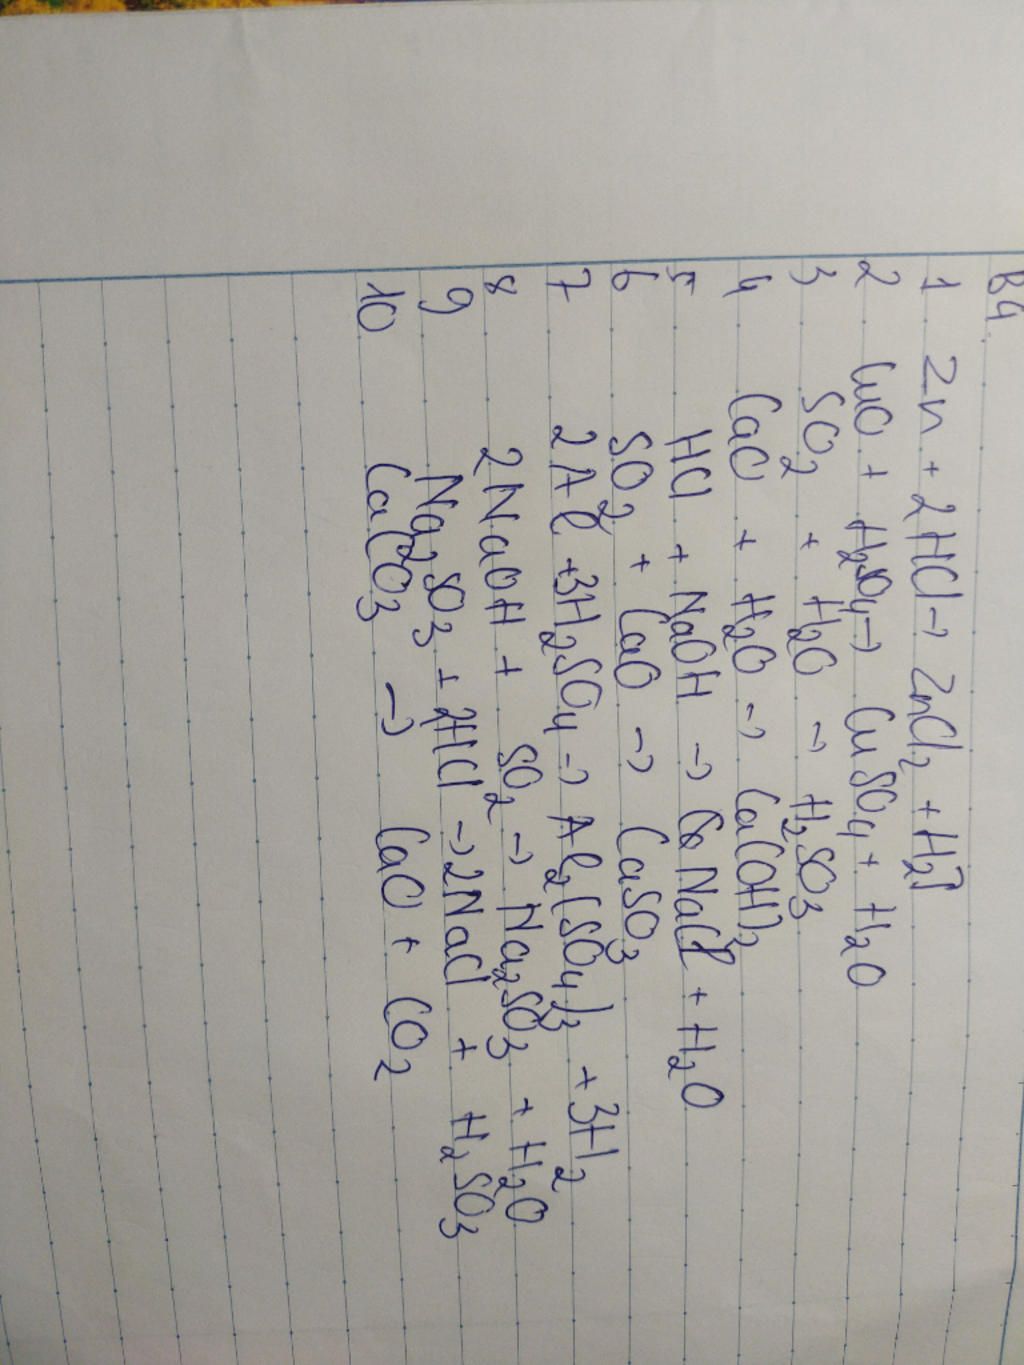 B4.
1 Zn + 2HCl → ZnCl₂ + H₂↑
2 CuO + H₂SO₄ → CuSO₄ + H₂O
3 SO₂ + H₂O → H₂SO₃
4 CaO + H₂O → Ca(OH)₂
5 HCl + NaOH → NaCl + H₂O
6 SO₂ + CaO → CaSO₃
7 2Al + 3H₂SO₄ → Al₂(SO₄)₃ + 3H₂
8 2NaOH + SO₂ → Na₂SO₃ + H₂O
9 Na₂SO₃ + 2HCl → 2NaCl + H₂SO₃
10 CaCO₃ → CaO + CO₂